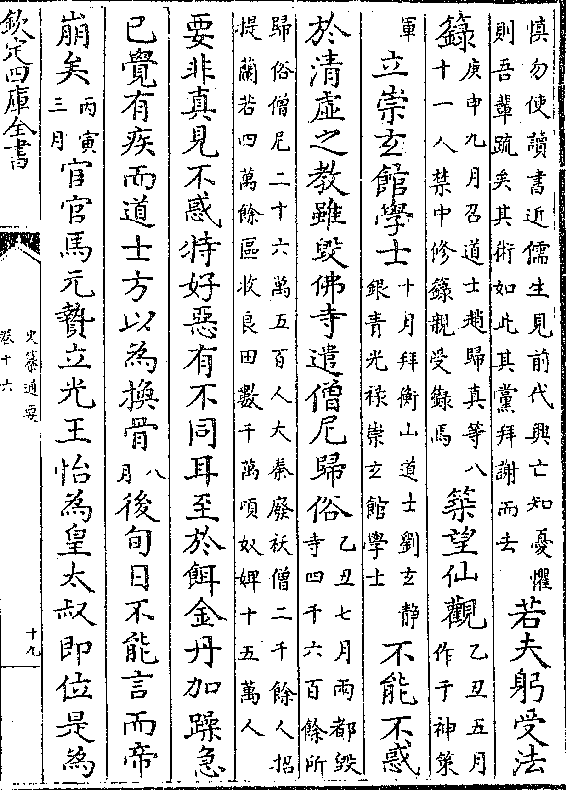 慎勿使讀書近儒生見前代興亡知憂懼
則吾輩疏矣其術如此其黨拜謝而去
若夫躬受法
籙
庚申九月召道士趙歸真等八
十一人禁中修籙親受籙焉
築望仙觀
乙丑五月
作于神策
軍
立崇玄館學士
十月拜衡山道士劉玄靜
銀青光祿崇玄館學士
不能不惑
於清虛之教雖毀佛寺遣僧尼歸俗
乙丑七月兩都毀
寺四千六百餘所
歸俗僧尼二十六萬五百人大秦廢祆僧二千餘人招
提蘭若四萬餘區收良田數千萬頃奴婢十五萬人
要非真見不惑特好惡有不同耳至於餌金丹加躁急
已覺有疾而道士方以為換骨
八
月
後旬日不能言而帝
崩矣
丙寅
三月
宦官馬元贄立光王怡為皇太叔即位是為
欽定四庫全書
史纂通要
卷十六
十九